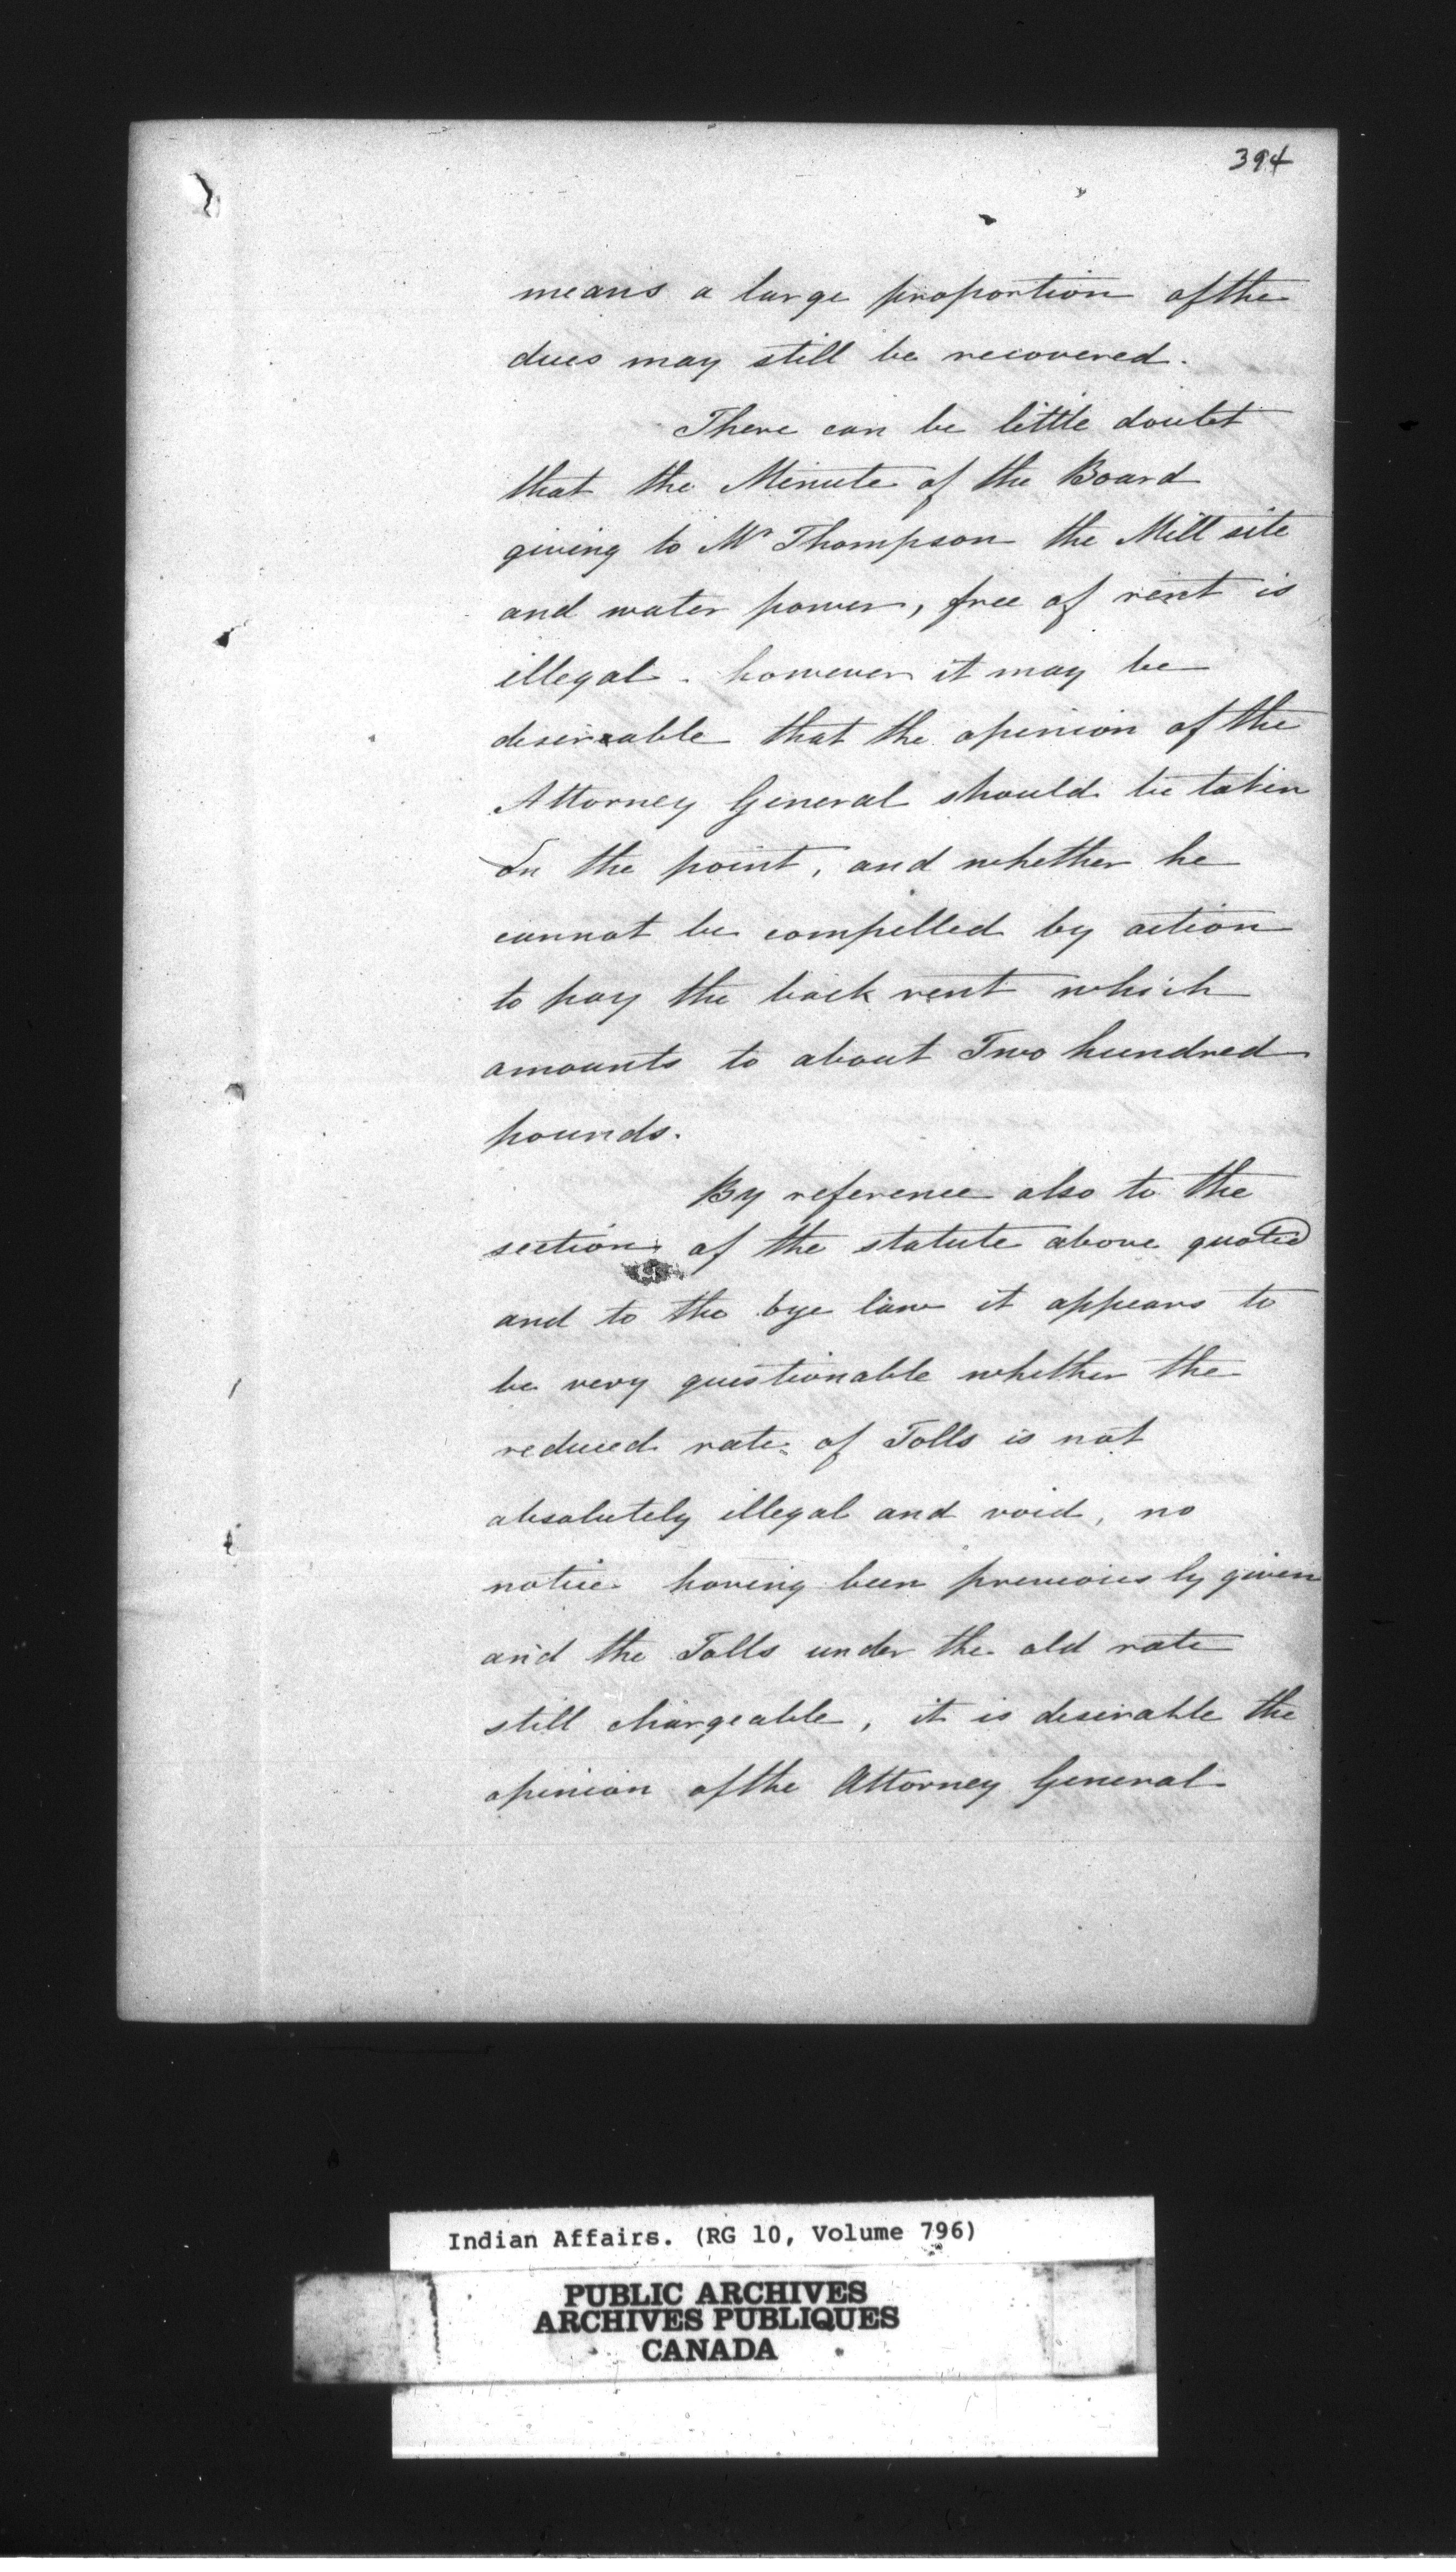 394
means a large proportion of the
dues may still be recovered.
There can be little doubt
that the Minute of the Board
giving to Mr Thompson the Mill site
and water power, free of rent is
illegal. however it may be
desireable that the opinion of the
Attorney General should be taken
on the point, and whether he
cannot be compelled by action
to pay the back rent which
amounts to about Two hundred
pounds.
By reference also to the
section of the statute above quoted
and to the bye law it appears to
be very questionable whether the
reduced rate of Tolls is not
absolutely illegal and void, no
notice having been previously given
and the Tolls under the old rate
still chargeable, it is desirable the
opinion of the Attorney General
Indian Affairs. (RG 10, Volume 796)
PUBLIC ARCHIVES
ARCHIVES PUBLIQUES
CANADA